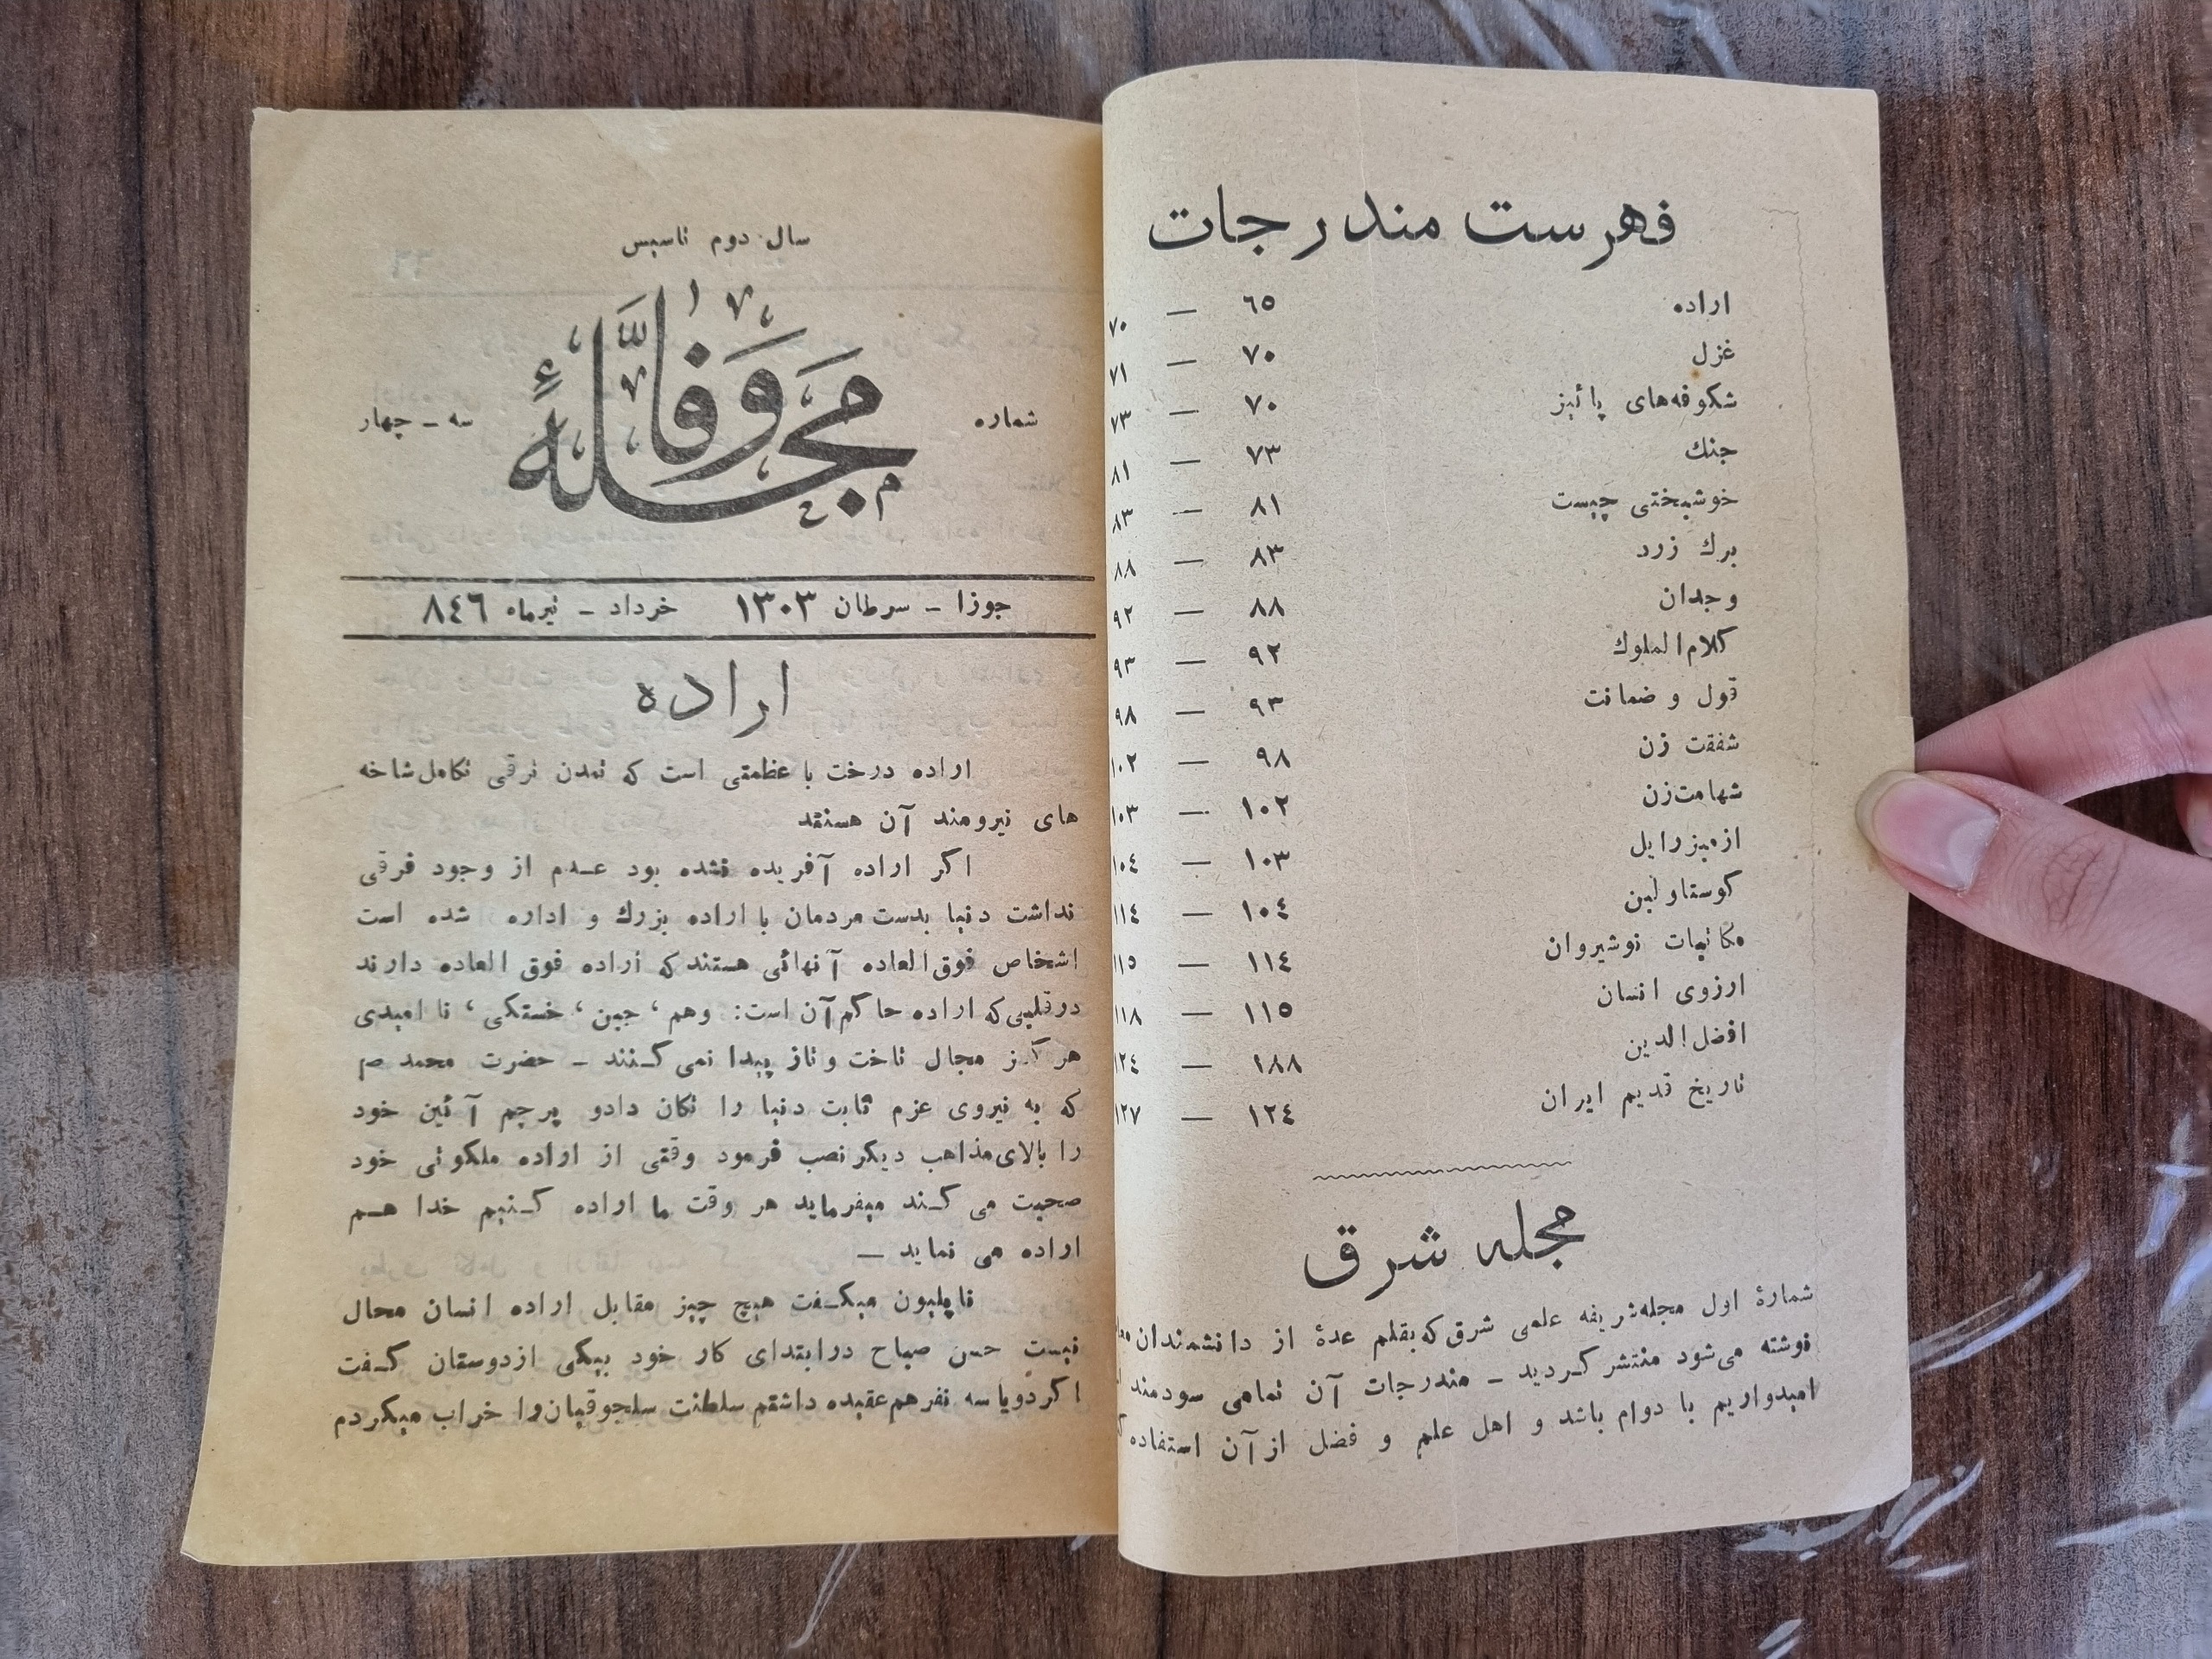 فهرست مندرجات
اراده ٦٥ — ٧٠
غزل ٧٠ — ٧١
شکوفه‌های پائیز ٧٠ — ٧٣
جنك ٧٣ — ٨١
خوشبختی چیست ٨١ — ٨٣
برك زرد ٨٣ — ٨٨
وجدان ٨٨ — ٩٢
کلام‌الملوك ٩٢ — ٩٣
قول و ضمانت ٩٣ — ٩٨
شفقت زن ٩٨ — ١٠٢
شهامت‌زن ١٠٢ — ١٠٣
ازمیزرابل ١٠٣ — ١٠٤
کوستاولبن ١٠٤ — ١١٤
مکاتبات نوشیروان ١١٤ — ١١٥
ارزوی انسان ١١٥ — ١١٨
افضل‌الدین ١٨٨ — ١٢٤
تاریخ قدیم ایران ١٢٤ — ١٢٧
مجله شرق
شمارهٔ اول مجله‌شریفه علمی شرق که‌بقلم عدهٔ از دانشمندان
نوشته می‌شود منتشر کردید – مندرجات آن تمامی سودمند
امیدواریم با دوام باشد و اهل علم و فضل از آن استفاده
سال دوم تاسیس
مجلهٔ وفا
شماره سه – چهار
جوزا – سرطان ١٣٠٣ خرداد – تیرماه ٨٤٦
اراده
اراده درخت با عظمتی است که تمدن ترقی تکامل شاخه
های نیرومند آن هستند
اکر اراده آفریده نشده بود عدم از وجود فرقی
نداشت دنیا بدست مردمان با اراده بزرك و اداره شده است
اشخاص فوق‌العاده آنهائی هستند که اراده فوق العاده دارند
درقلبی‌که اراده حاکم آن است: وهم، جبن، خستکی، نا امیدی
هرکز مجال تاخت و تاز پیدا نمی کنند – حضرت محمد ص
که به نیروی عزم ثابت دنیا را تکان دادو پرچم آئین خود
را بالای مذاهب دیکر نصب فرمود وقتی از اراده ملکوتی خود
صحبت می کند میفرماید هر وقت ما اراده کنیم خدا هم
اراده می نماید —
ناپلیون میکفت هیچ چیز مقابل اراده انسان محال
نیست حسن صباح درابتدای کار خود بیکی ازدوستان کفت
اکردویا سه نفر هم‌عقیده داشتم سلطنت سلجوقیان‌را خراب میکردم